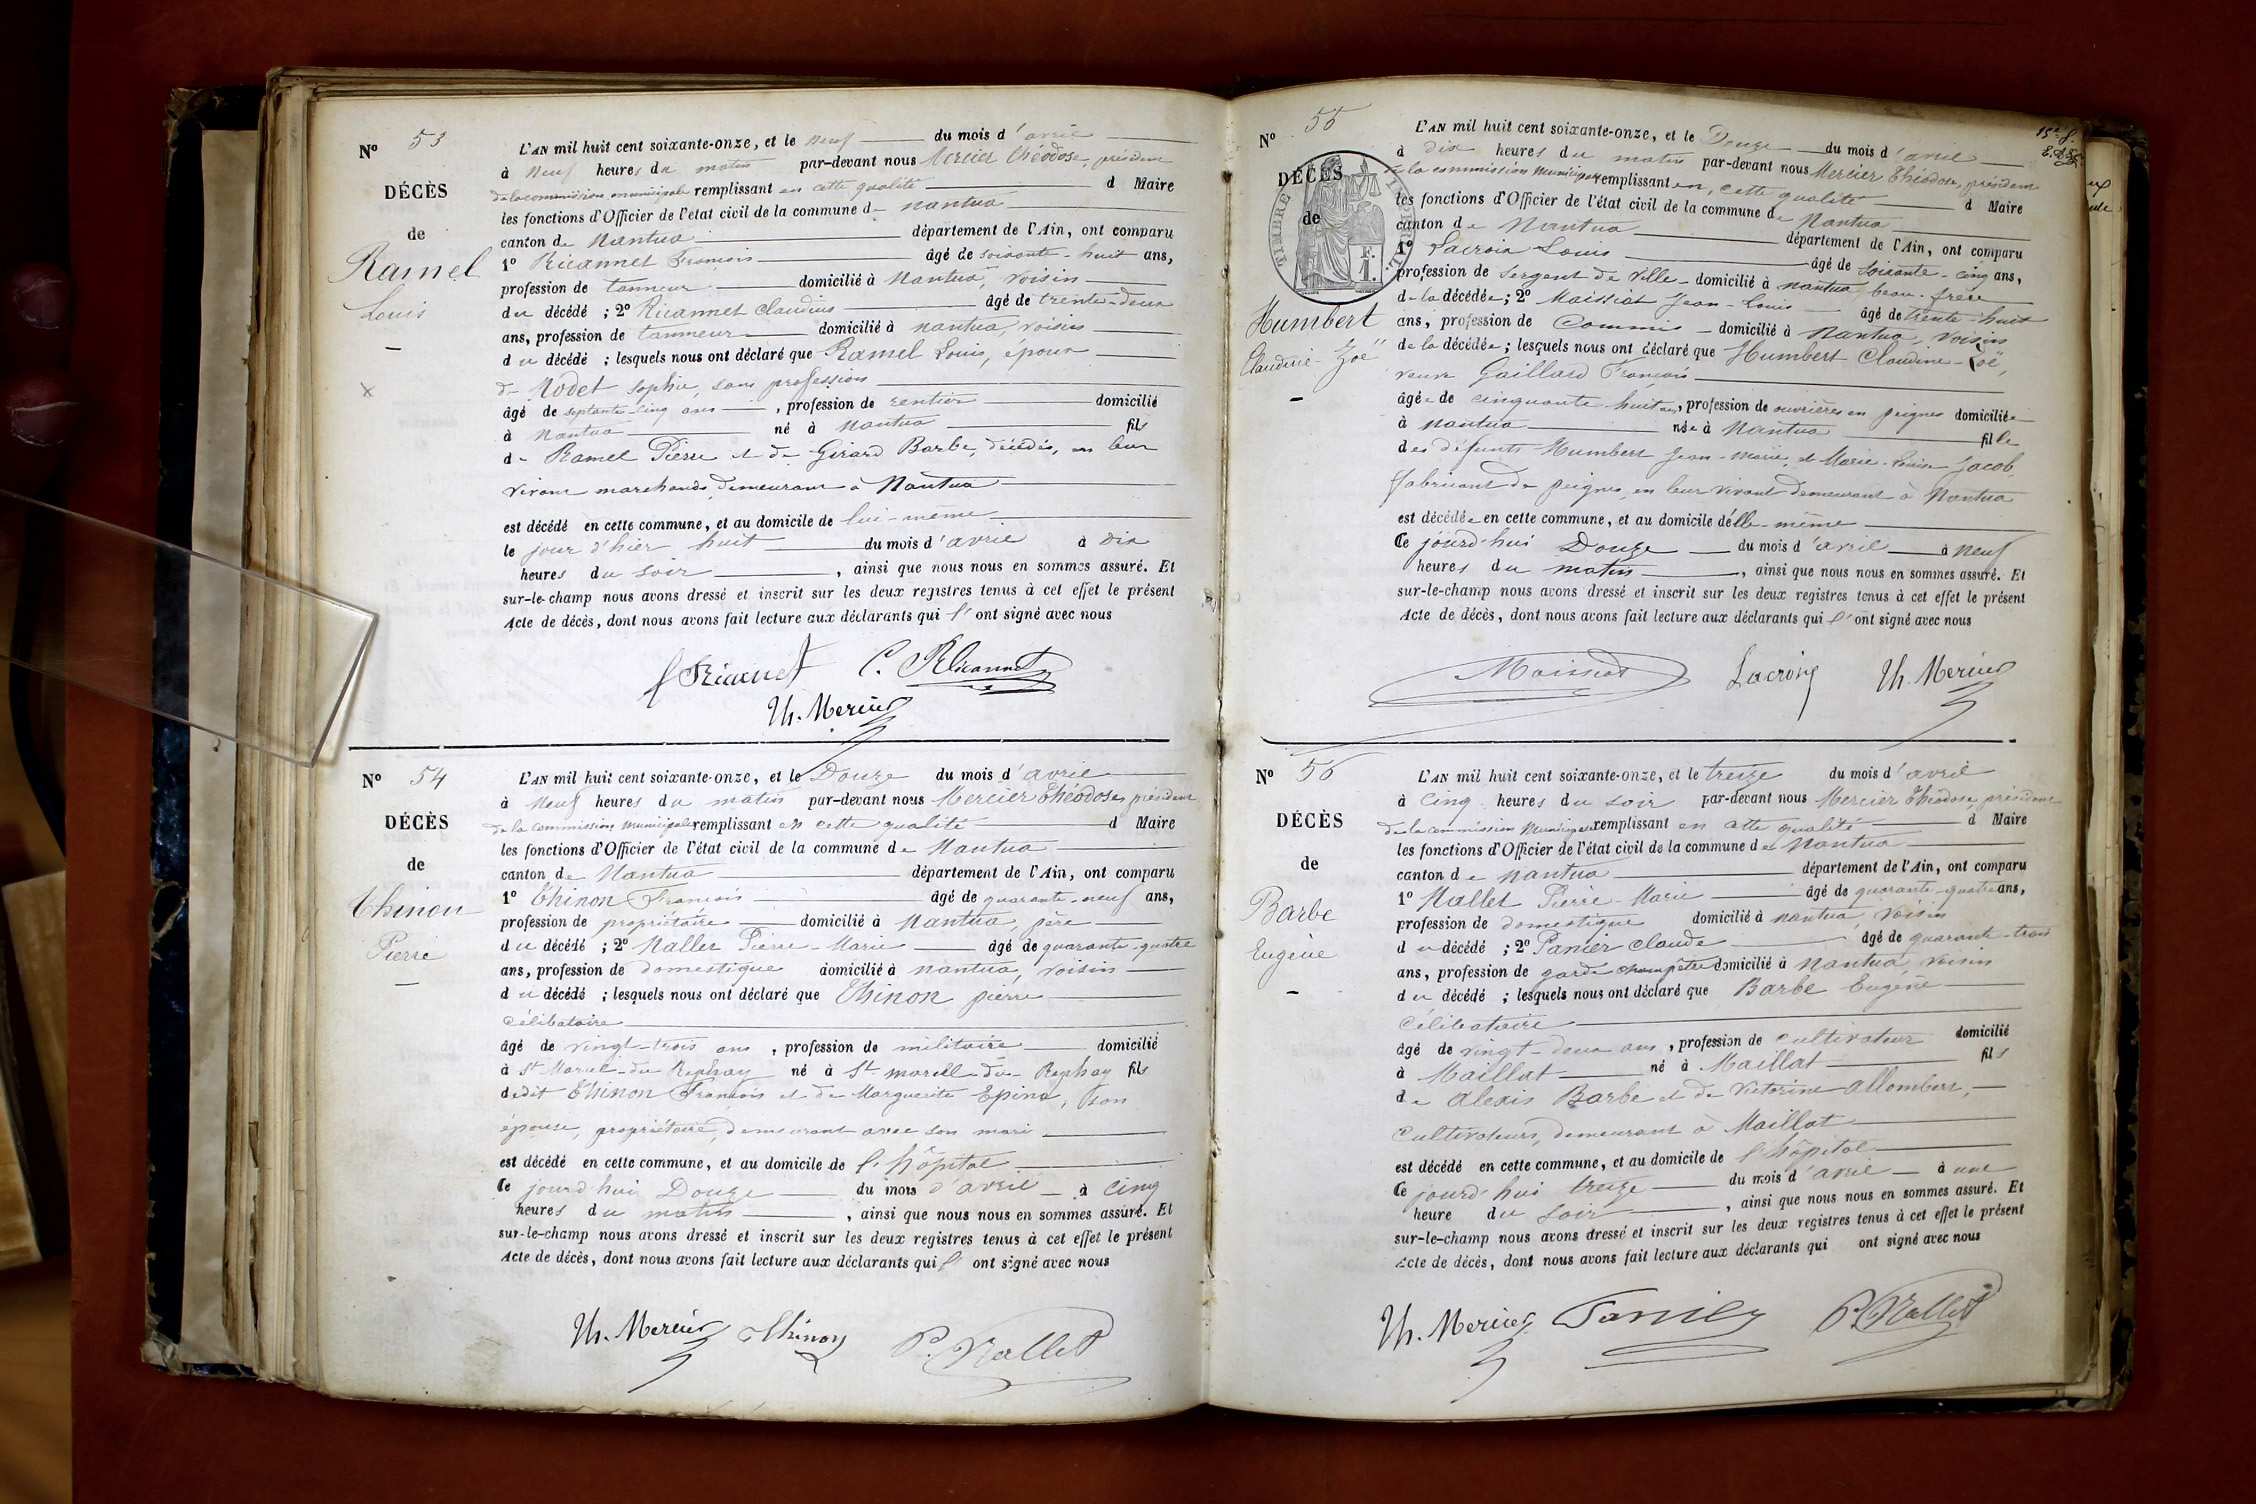 Nº 53
DÉCÈS
de
Ramel
Louis
L'AN mil huit cent soixante-onze, et le neuf du mois d'avril
à neuf heures du matin par-devant nous Mercier Théodose, président
de la commission municipale remplissant en cette qualité d Maire
les fonctions d'Officier de l'état civil de la commune de Nantua
canton de Nantua département de l'Ain, ont comparu
1º Ricannet François âgé de soixante-huit ans,
profession de tanneur domicilié à Nantua, voisin
du décédé ; 2º Ricannet Claudius âgé de trente-deux
ans, profession de tanneur domicilié à Nantua, voisin
du décédé ; lesquels nous ont déclaré que Ramel Louis, époux
de Nodet Sophie, sans profession
âgé de septante-cinq ans, profession de rentier domicilié
à Nantua né à Nantua fils
de Ramel Pierre et de Girard Barbe, décédés, en leur
vivant marchands, demeurant à Nantua
est décédé en cette commune, et au domicile de lui-même
le jour d'hier huit du mois d'avril à dix
heures du soir, ainsi que nous nous en sommes assuré. Et
sur-le-champ nous avons dressé et inscrit sur les deux registres tenus à cet effet le présent
Acte de décès, dont nous avons fait lecture aux déclarants qui l'ont signé avec nous
f Ricannet C. Ricannet
Th. Mercier
Nº 54
DÉCÈS
de
Thinon
Pierre
L'AN mil huit cent soixante-onze, et le Douze du mois d'avril
à neuf heures du matin par-devant nous Mercier Théodose, président
de la commission municipale remplissant en cette qualité d Maire
les fonctions d'Officier de l'état civil de la commune de Nantua
canton de Nantua département de l'Ain, ont comparu
1º Thinon François âgé de quarante-neuf ans,
profession de propriétaire domicilié à Nantua, père
du décédé ; 2º Nallet Pierre-Marie âgé de quarante-quatre
ans, profession de domestique domicilié à Nantua, voisin
du décédé ; lesquels nous ont déclaré que Thinon pierre
célibataire
âgé de vingt-trois ans, profession de militaire domicilié
à St né à St fils
dedit Thinon François et de Marguerite Epina, son
épouse, propriétaire, demeurant avec son mari
est décédé en cette commune, et au domicile de l'hôpital
Ce jourd'hui Douze du mois d'avril à cinq
heures du matin, ainsi que nous nous en sommes assuré. Et
sur-le-champ nous avons dressé et inscrit sur les deux registres tenus à cet effet le présent
Acte de décès, dont nous avons fait lecture aux déclarants qui l'ont signé avec nous
Th. Mercier Thinon P. Nallet
Nº 55
DÉCÈS
de
TIMBRE
F.
1.
Humbert
Claudine-Zoë
L'AN mil huit cent soixante-onze, et le Douze du mois d'avril
à dix heures du matin par-devant nous Mercier Théodose, président
de la commission municipale remplissant en, cette qualité d Maire
les fonctions d'Officier de l'état civil de la commune de Nantua
canton de Nantua département de l'Ain, ont comparu
1º Lacroix Louis âgé de soixante-cinq ans,
profession de sergent de ville domicilié à Nantua, beau-frère
de la décédée ; 2º Maissiat Jean-Louis âgé de trente-huit
ans, profession de Commis domicilié à Nantua, voisin
de la décédée ; lesquels nous ont déclaré que Humbert Claudine-Zoë,
veuve Gaillard François
âgée de cinquante huit ans, profession de ouvrières en peignes domiciliée
à Nantua née à Nantua fille
des défunts Humbert Jean-Marie, et Marie-Louise Jacob,
fabricant de peignes, en leur vivant demeurant à Nantua
est décédée en cette commune, et au domicile d'elle-même
Ce jourd'hui Douze du mois d'avril à neuf
heures du matin, ainsi que nous nous en sommes assuré. Et
sur-le-champ nous avons dressé et inscrit sur les deux registres tenus à cet effet le présent
Acte de décès, dont nous avons fait lecture aux déclarants qui l'ont signé avec nous
Maissiat Lacroix Th. Mercier
Nº 56
DÉCÈS
de
Barbe
Eugène
L'AN mil huit cent soixante-onze, et le treize du mois d'avril
à cinq heures du soir par-devant nous Mercier Théodose, président
de la commission municipale remplissant en cette qualité d Maire
les fonctions d'Officier de l'état civil de la commune de Nantua
canton de Nantua département de l'Ain, ont comparu
1º Nallet Pierre-Marie âgé de quarante-quatre ans,
profession de domestique domicilié à Nantua, voisin
du décédé ; 2º Panier Claude âgé de quarante-trois
ans, profession de garde champêtre domicilié à Nantua, voisin
du décédé ; lesquels nous ont déclaré que Barbe Eugène
Célibataire
âgé de vingt-deux ans, profession de cultivateur domicilié
à Maillat né à Maillat fils
de Alexis Barbe et de Victorine Allombert,
Cultivateurs, demeurant à Maillat
est décédé en cette commune, et au domicile de l'hôpital
Ce jourd'hui treize du mois d'avril à une
heure du soir, ainsi que nous nous en sommes assuré. Et
sur-le-champ nous avons dressé et inscrit sur les deux registres tenus à cet effet le présent
Acte de décès, dont nous avons fait lecture aux déclarants qui ont signé avec nous
Th. Mercier Panier P. Nallet